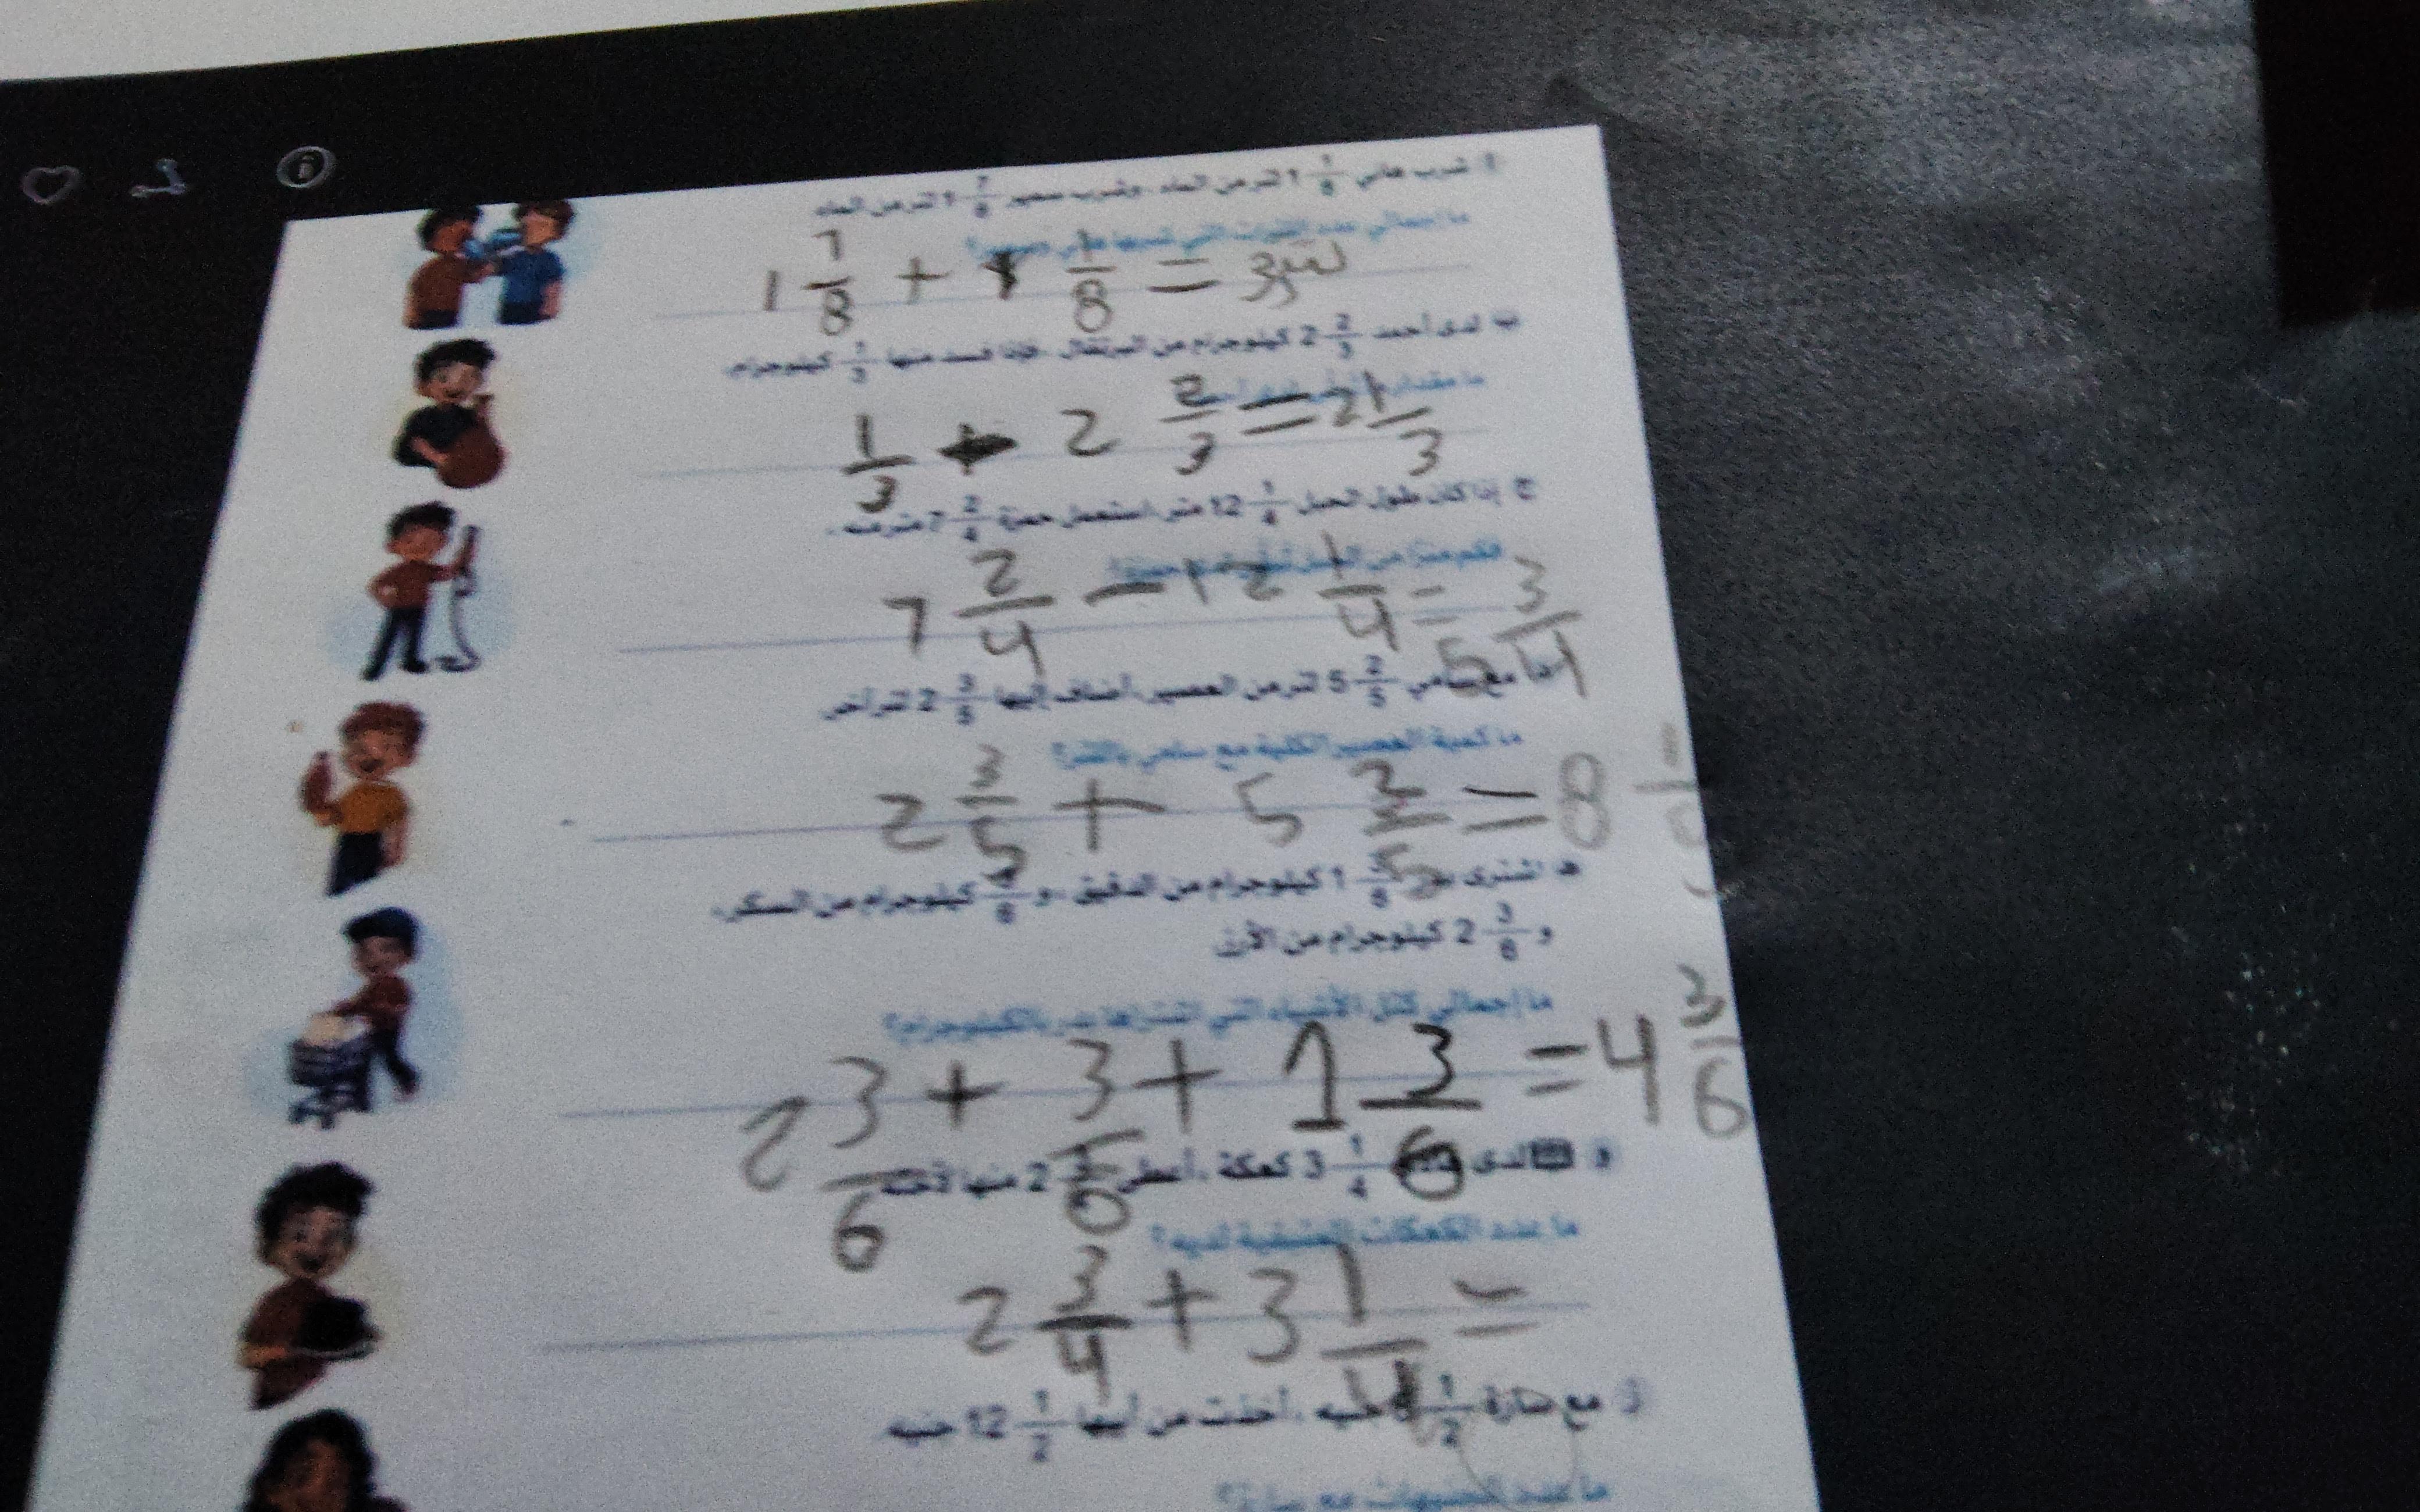 شرب هاني 1 1/8 لتر من الماء، وشرب سمير 1 7/8 لتر من الماء
ما إجمالي عدد اللترات التي شربها هاني وسمير؟
1 7/8 + 1 1/8 = 3
ب لدى أحمد 2 2/3 كيلوجرام من البرتقال، فإذا فسد منها 1/3 كيلوجرام.
ما مقدار
1/3 - 2 2/3 = 2 1/3
ج إذا كان طول الحبل 12 1/4 متر، استعمل حمزة 7 2/4 متر منه.
فكم مترًا من الحبل
7 2/4 - 12 1/4 = 5 3/4
مع سامي 5 2/5 لتر من العصير، أضاف إليها 2 3/5 لتر أخر
ما كمية العصير الكلية مع سامي باللتر؟
2 3/5 + 5 2/5 = 8
هـ اشترى 1 كيلوجرام من الدقيق، و كيلوجرام من السكر،
و 2 3/6 كيلوجرام من الأرز
ما إجمالي كتل الأشياء التي اشتراها بدر بالكيلوجرام؟
2 3/6 + 3/6 + 1 3/6 = 4 3/6
و لدى 3 1/4 كعكة، أعطى 2 منها لأخته
ما عدد الكعكات المتبقية لديه؟
2 3/4 + 3 1/4 =
مع سارة 1/2 جنيه، أخذت من أبيها 12 1/2 جنيه
ما عدد الجنيهات مع سارة؟